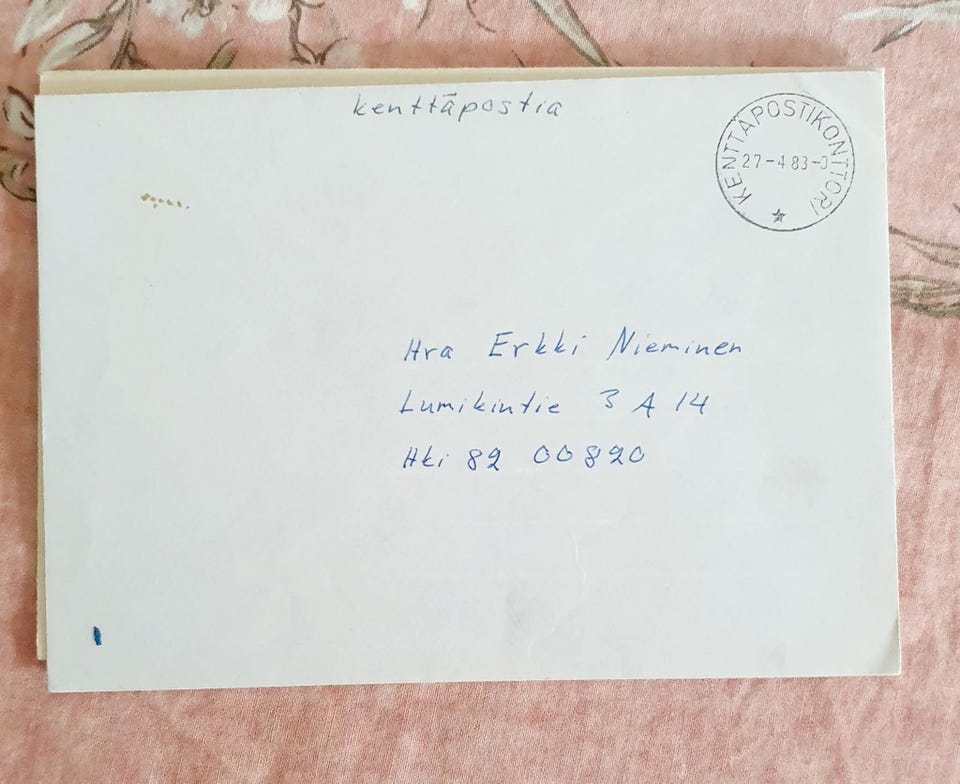 kenttäpostia
KENTTÄPOSTIKONTTORI
27-4 83-0
Hra Erkki Nieminen
Lumikintie 3 A 14
Hki 82 00820